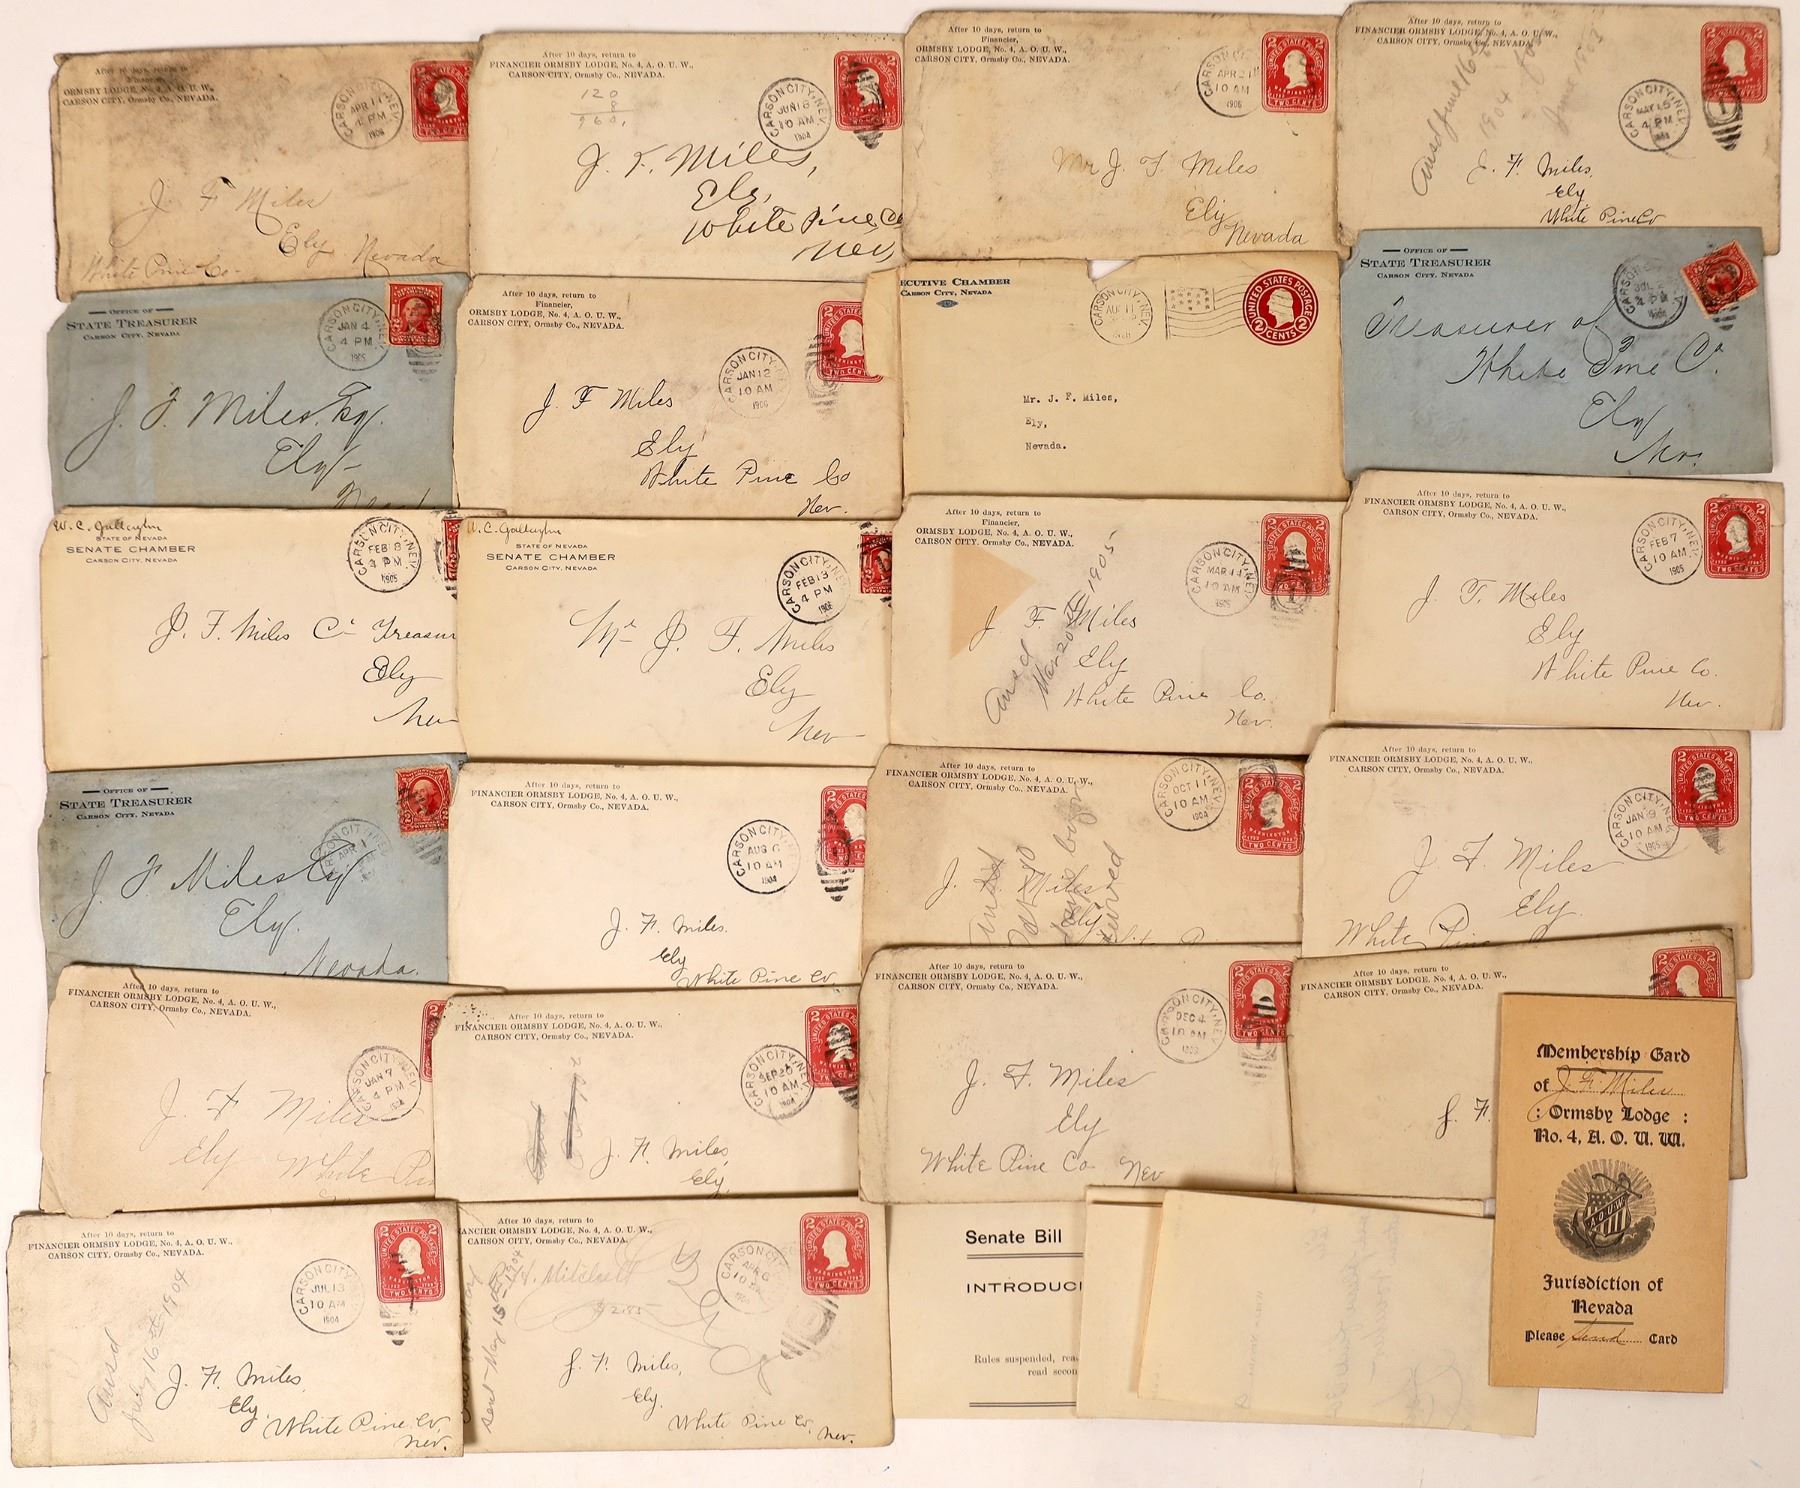 After 10 days, return to
Financier,
ORMSBY LODGE, No. 4, A. O. U. W.,
CARSON CITY, Ormsby Co., NEVADA.
CARSON CITY, NEV.
APR 11
4 PM
1906
J. F Miles
Ely Nevada
White Pine Co.
After 10 days, return to
FINANCIER ORMSBY LODGE, No. 4, A. O. U. W.,
CARSON CITY, Ormsby Co., NEVADA.
120
8
960.
CARSON CITY, NEV.
JUN 6
10 AM
1904
J. F. Miles,
Ely,
White Pine Co
Nev,
After 10 days, return to
Financier,
ORMSBY LODGE, No. 4, A. O. U. W.,
CARSON CITY, Ormsby Co., NEVADA.
CARSON CITY
APR 21
10 AM
1906
Mr J. F. Miles
Ely
Nevada
After 10 days, return to
FINANCIER ORMSBY LODGE, No. 4, A. O. U. W.,
CARSON CITY, Ormsby Co., NEVADA.
Ansd June 16
1904
CARSON CITY, NEV.
MAY 15
4 PM
J. F. Miles,
Ely
White Pine Co
OFFICE OF
STATE TREASURER
CARSON CITY, NEVADA
CARSON CITY, NEV.
JAN 4
4 PM
1905
J. F. Miles, Esq.
Ely
After 10 days, return to
Financier,
ORMSBY LODGE, No. 4, A. O. U. W.,
CARSON CITY, Ormsby Co., NEVADA.
CARSON CITY
JAN 12
10 AM
1906
J. F Miles
Ely
White Pine Co
Nev.
ECUTIVE CHAMBER
CARSON CITY, NEVADA
CARSON CITY, NEV.
AUG 11
UNITED STATES POSTAGE
2 CENTS 2
Mr. J. F. Miles,
Ely,
Nevada.
OFFICE OF
STATE TREASURER
CARSON CITY, NEVADA
Treasurer of
White Pine Co.
Ely
Nev.
W. C. Gallagher
STATE OF NEVADA
SENATE CHAMBER
CARSON CITY, NEVADA
CARSON CITY, NEV.
FEB 8
4 PM
1905
J. F. Miles Co Treasur
Ely
Nev
W. C. Gallagher
STATE OF NEVADA
SENATE CHAMBER
CARSON CITY, NEVADA
CARSON CITY, NEV.
FEB 13
4 PM
Mr J. F. Miles
Ely
Nev
After 10 days, return to
Financier,
ORMSBY LODGE, No. 4, A. O. U. W.,
CARSON CITY, Ormsby Co., NEVADA.
CARSON CITY, NEV.
MAR 14
10 AM
1905
J. F. Miles
Ely
White Pine Co.
Nev.
Ansd
Mar 20th 1905
After 10 days, return to
FINANCIER ORMSBY LODGE, No. 4, A. O. U. W.,
CARSON CITY, Ormsby Co., NEVADA.
CARSON CITY, NEV.
FEB 7
10 AM
1905
J. F. Miles
Ely
White Pine Co.
Nev.
OFFICE OF
STATE TREASURER
CARSON CITY, NEVADA
J F Miles Esq
Ely.
Nevada.
After 10 days, return to
FINANCIER ORMSBY LODGE, No. 4, A. O. U. W.,
CARSON CITY, Ormsby Co., NEVADA.
CARSON CITY
AUG 6
10 AM
1904
J. F. Miles.
Ely
White Pine Co
After 10 days, return to
FINANCIER ORMSBY LODGE, No. 4, A. O. U. W.,
CARSON CITY, Ormsby Co., NEVADA.
CARSON CITY, NEV.
OCT 11
10 AM
1904
J. F. Miles
Ely
After 10 days, return to
FINANCIER ORMSBY LODGE, No. 4, A. O. U. W.,
CARSON CITY, Ormsby Co., NEVADA.
CARSON CITY, NEV.
JAN 9
10 AM
1905
J. F. Miles
Ely.
White Pine
After 10 days, return to
FINANCIER ORMSBY LODGE, No. 4, A. O. U. W.,
CARSON CITY, Ormsby Co., NEVADA.
CARSON CITY, NEV.
JAN 7
4 PM
J. F. Miles
Ely White Pin
After 10 days, return to
FINANCIER ORMSBY LODGE, No. 4, A. O. U. W.,
CARSON CITY, Ormsby Co., NEVADA.
CARSON CITY, NEV.
SEP 20
10 AM
1904
J. F. Miles,
Ely,
After 10 days, return to
FINANCIER ORMSBY LODGE, No. 4, A. O. U. W.,
CARSON CITY, Ormsby Co., NEVADA.
CARSON CITY, NEV.
DEC 4
10 AM
J. F. Miles
Ely
White Pine Co Nev
After 10 days, return to
FINANCIER ORMSBY LODGE, No. 4, A. O. U. W.,
CARSON CITY, Ormsby Co., NEVADA.
J. F.
Membership Card
of J. F. Miles
: Ormsby Lodge :
No. 4, A. O. U. W.
A.O.U.W.
Jurisdiction of
Nevada
Please Send Card
After 10 days, return to
FINANCIER ORMSBY LODGE, No. 4, A. O. U. W.,
CARSON CITY, Ormsby Co., NEVADA.
CARSON CITY
JUL 13
10 AM
1904
Ansd
July 16th 1904
J. F. Miles,
Ely.
White Pine Co.
Nev.
After 10 days, return to
ANCIER ORMSBY LODGE, No. 4, A. O. U. W.,
CARSON CITY, Ormsby Co., NEVADA.
Mitchell
$2.85
CARSON CITY
APR 6
10 AM
J. F. Miles,
Ely.
White Pine Co.
Nev.
Senate Bill
INTRODUC
Rules suspended, rea
read secon